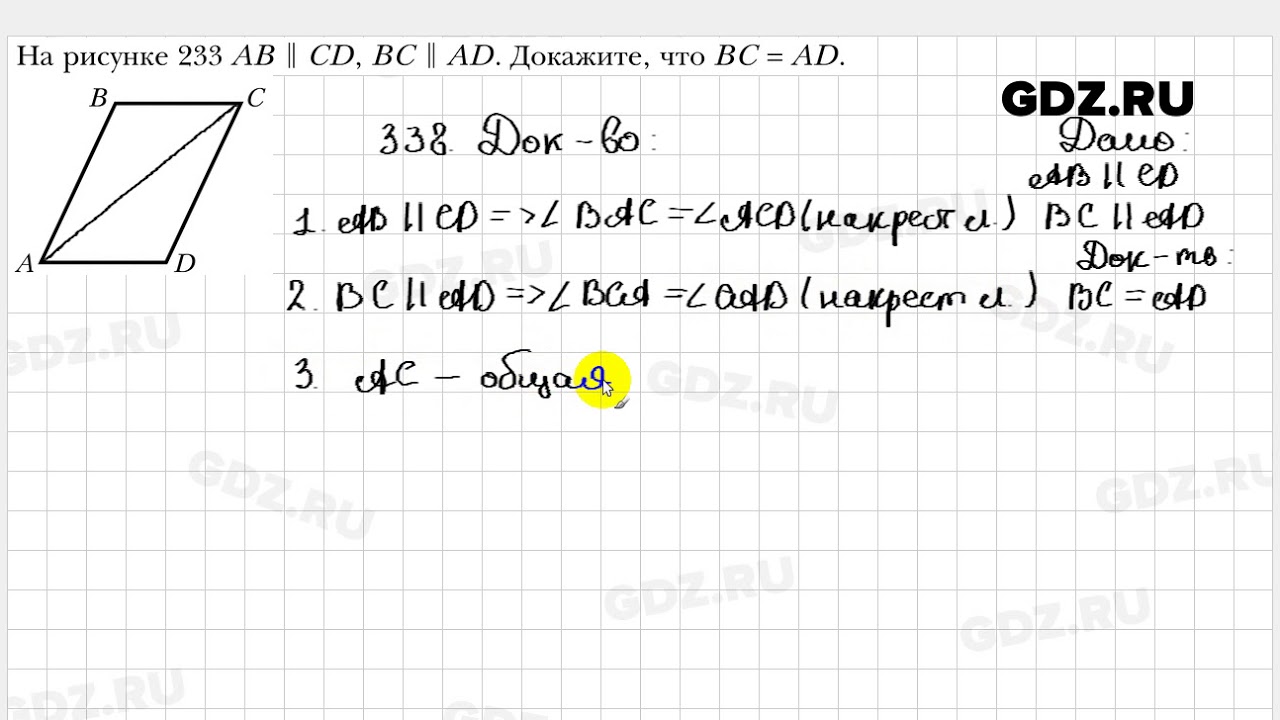 На рисунке 233 AB ∥ CD, BC ∥ AD. Докажите, что BC = AD.
B C
A D
GDZ.RU
338. Док-во:
Дано:
AB || CD
BC || AD
Док-ть:
BC = AD
1. AB || CD => ∠ BAC = ∠ACD (накрест л.)
2. BC || AD => ∠ BCA = ∠ CAD (накрест л.)
3. AC – общая
GDZ.RU
GDZ.RU
GDZ.RU
GDZ.RU
GDZ.RU
GDZ.RU
GDZ.RU
GDZ.RU
GDZ.RU
GDZ.RU
GDZ.RU